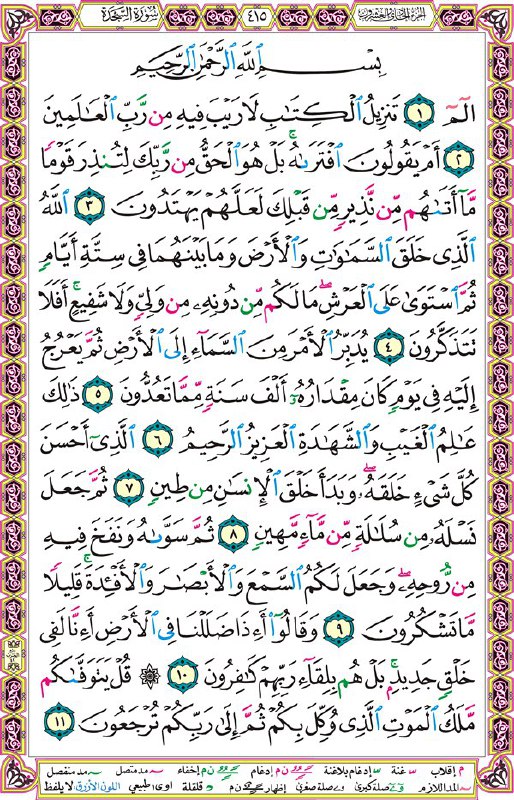 الجزء الحادي والعشرون ٤١٥ سورة السجدة
بِسْمِ ٱللَّهِ ٱلرَّحْمَٰنِ ٱلرَّحِيمِ
الٓمٓ ١ تَنزِيلُ ٱلْكِتَٰبِ لَا رَيْبَ فِيهِ مِن رَّبِّ ٱلْعَٰلَمِينَ
٢ أَمْ يَقُولُونَ ٱفْتَرَىٰهُ ۚ بَلْ هُوَ ٱلْحَقُّ مِن رَّبِّكَ لِتُنذِرَ قَوْمًا
مَّآ أَتَىٰهُم مِّن نَّذِيرٍ مِّن قَبْلِكَ لَعَلَّهُمْ يَهْتَدُونَ ٣ ٱللَّهُ
ٱلَّذِى خَلَقَ ٱلسَّمَٰوَٰتِ وَٱلْأَرْضَ وَمَا بَيْنَهُمَا فِى سِتَّةِ أَيَّامٍ
ثُمَّ ٱسْتَوَىٰ عَلَى ٱلْعَرْشِ ۖ مَا لَكُم مِّن دُونِهِۦ مِن وَلِىٍّ وَلَا شَفِيعٍ ۚ أَفَلَا
تَتَذَكَّرُونَ ٤ يُدَبِّرُ ٱلْأَمْرَ مِنَ ٱلسَّمَآءِ إِلَى ٱلْأَرْضِ ثُمَّ يَعْرُجُ
إِلَيْهِ فِى يَوْمٍ كَانَ مِقْدَارُهُۥٓ أَلْفَ سَنَةٍ مِّمَّا تَعُدُّونَ ٥ ذَٰلِكَ
عَٰلِمُ ٱلْغَيْبِ وَٱلشَّهَٰدَةِ ٱلْعَزِيزُ ٱلرَّحِيمُ ٦ ٱلَّذِىٓ أَحْسَنَ
كُلَّ شَىْءٍ خَلَقَهُۥ ۖ وَبَدَأَ خَلْقَ ٱلْإِنسَٰنِ مِن طِينٍ ٧ ثُمَّ جَعَلَ
نَسْلَهُۥ مِن سُلَٰلَةٍ مِّن مَّآءٍ مَّهِينٍ ٨ ثُمَّ سَوَّىٰهُ وَنَفَخَ فِيهِ
مِن رُّوحِهِۦ ۖ وَجَعَلَ لَكُمُ ٱلسَّمْعَ وَٱلْأَبْصَٰرَ وَٱلْأَفْـِٔدَةَ ۚ قَلِيلًا
مَّا تَشْكُرُونَ ٩ وَقَالُوٓا۟ أَءِذَا ضَلَلْنَا فِى ٱلْأَرْضِ أَءِنَّا لَفِى
خَلْقٍ جَدِيدٍۭ ۚ بَلْ هُم بِلِقَآءِ رَبِّهِمْ كَٰفِرُونَ ١٠ ۞ قُلْ يَتَوَفَّىٰكُم
مَّلَكُ ٱلْمَوْتِ ٱلَّذِى وُكِّلَ بِكُمْ ثُمَّ إِلَىٰ رَبِّكُمْ تُرْجَعُونَ ١١
م إقلاب غنة إدغام بلاغنة ن م إدغام ن م إخفاء مد متصل مد منفصل
المد اللازم صلة كبرى صلة صغرى إظهار ن م قلقلة اوى طبيعي اللون الأزرق لا يلفظ